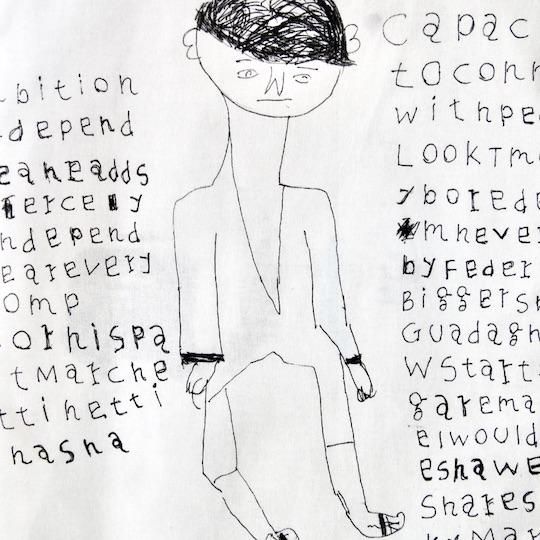 bition
depend
eaheadds
fercely
ndepend
earevery
omp
orhispa
tmarche
ttinetti
nasna
Capac
toconn
withpe
LOOKTm
yborede
mnever
byFeder
Biggers
Guadagn
WStart
garema
elwould
eshawe
Shares